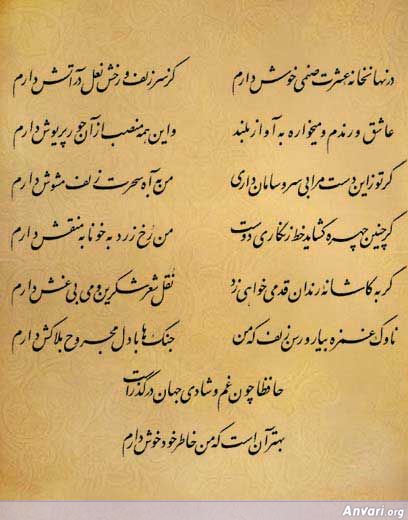 در نهانخانه عشرت صنمی خوش دارم کز سر زلف و رخش نعل در آتش دارم
عاشق و رندم و میخواره به آواز بلند واین همه منصب از آن حور پریوش دارم
گر تو زاین دست مرا بی سر و سامان داری من به آه سحرت زلف مشوش دارم
گر چنین چهره گشاید خط زنگاری دوست من رخ زرد به خونابه منقش دارم
گر به کاشانه رندان قدمی خواهی زد نقل شعر شکرین و می بی غش دارم
ناوک غمزه بیار و رسن زلف که من جنگ ها با دل مجروح بلاکش دارم
حافظا چون غم و شادی جهان در گذر است
بهتر آن است که من خاطر خود خوش دارم
Anvari.org